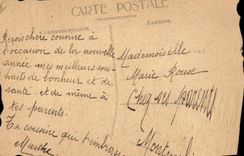 CARTE POSTALE
Reçois chère cousine a
l'occasion de la nouvelle
année mes meilleurs sou-
haits de bonheur et de
santé et de même à
tes parents.
Ta cousine qui t'embrasse
Marthe
Mademoiselle
Marie
Chez ses parents